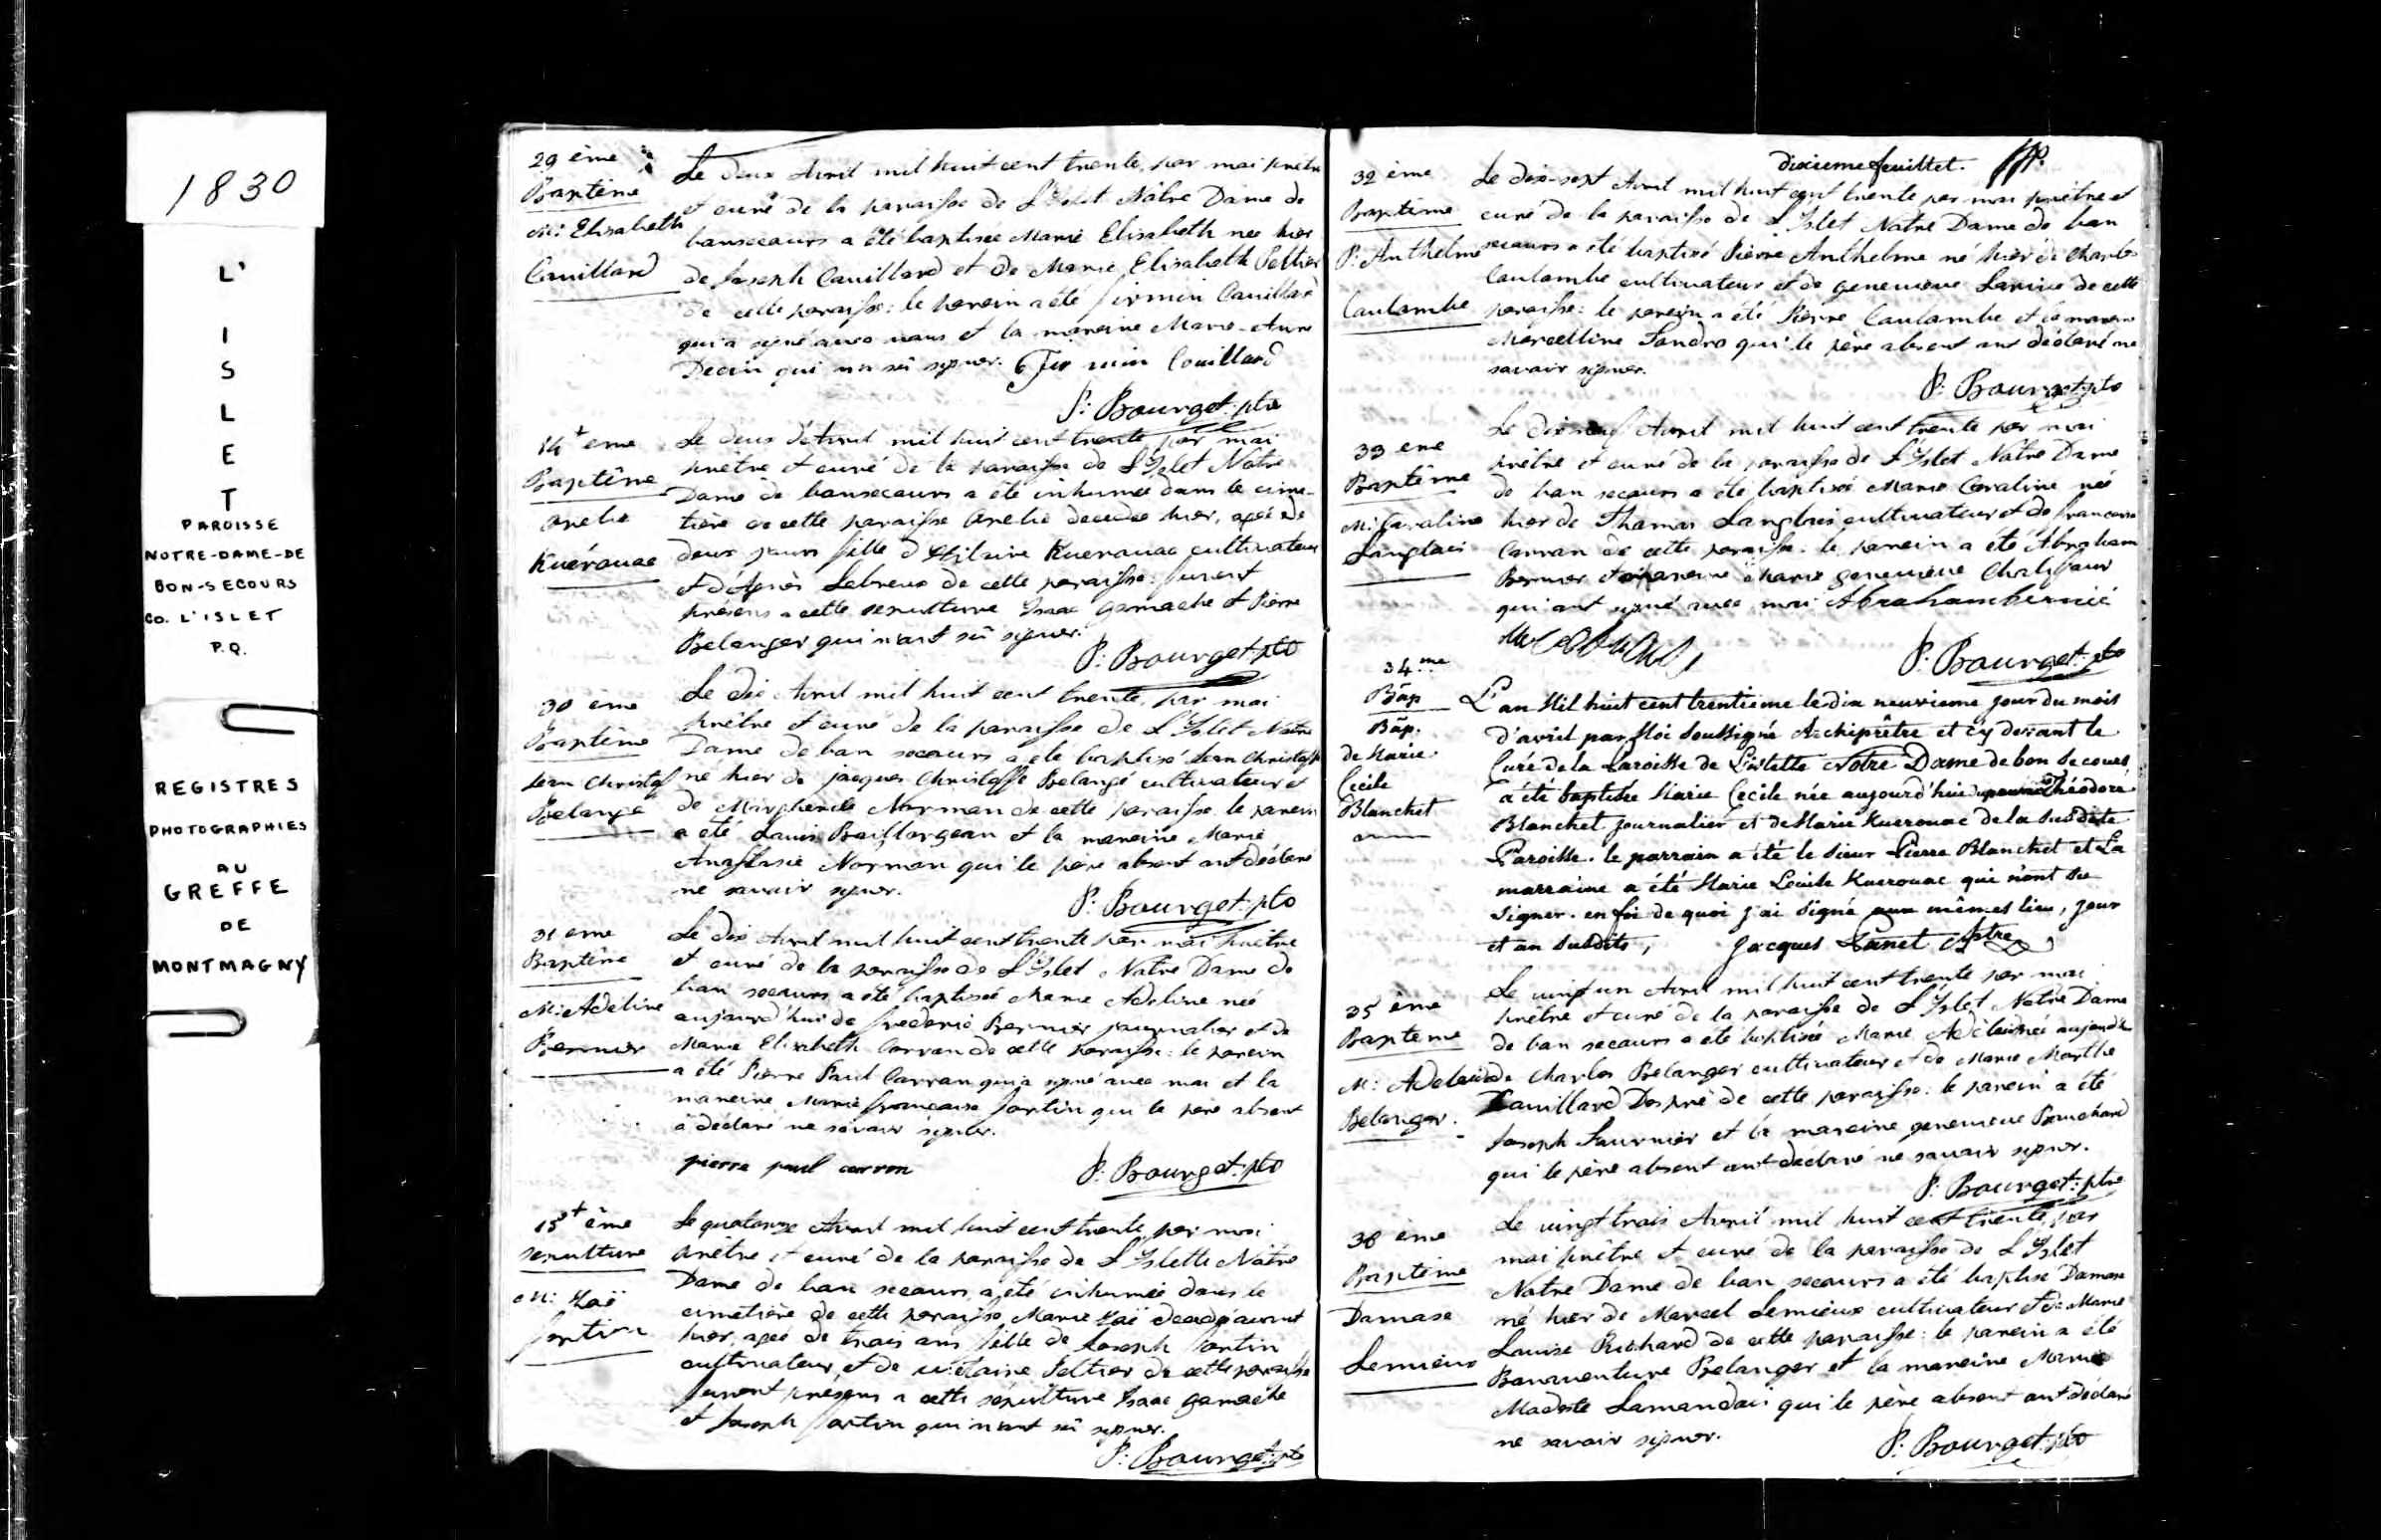 1830
L'
I
S
L
E
T
PAROISSE
NOTRE-DAME-DE
BON-SECOURS
CO. L'ISLET
P.Q.
REGISTRES
PHOTOGRAPHIES
AU
GREFFE
DE
MONTMAGNY
29 ème
Baptême
M: Elisabeth
Couillard
Le deux Avril mil huit cent trente, par moi prêtre
et curé de la paroisse de L'Islet Nôtre Dame de
bonsecours a été baptisée Marie Elisabeth née hier
de Joseph Couillard et de Marie Elisabeth Peltier
de cette paroisse: le parein a été firmin Couillard
qui a signé avec nous et la mareine Marie-Anne
qui n'a sû signer. Firmin Couillard
P: Bourget: ptre
14 + eme
Baptême
Arelie
Kuérouac
Le deux d'Avril mil huit cent trente par moi
prêtre et curé de la paroisse de L'Islet Notre
Dame de bonsecours a été inhumée dans le cime-
tière de cette paroisse Arelie decedée hier, agée de
deux jours fille d'Hilaire Kuerouac cultivateur
et d'Agnès Lebreux de cette paroisse: furent
présens a cette sepulture Isaac Gamache et Pierre
Belanger qui n'ont sû signer.
P: Bourget: ptre
30 ème
Baptême
Jean Christoff
Belangé
Le dix Avril mil huit cent trente, par moi
prêtre et curé de la paroisse de L'Islet Notre
Dame de bon secours a été baptisé Jean Christoffe
né hier de jacques Christoffe Belangé cultivateur et
de Norman de cette paroisse le parein
a été Louis Baillargean et la mareine Marie
Anastasie Norman qui le père absent ont déclaré
ne savoir signer.
P: Bourget: ptre
31 eme
Baptême
M: Adeline
Bernier
Le dix Avril mil huit cent trente par moi prêtre
et curé de la paroisse de L'Islet Notre Dame de
bon secours a été baptisée Marie Adeline née
aujourd'hui de frederic Bernier journalier et de
Marie Elisabeth Carran de cette paroisse: le parein
a été Pierre Paul Carran qui a signé avec moi et la
mareine Marie françoise fortin qui le père absent
a déclaré ne savoir signer.
pierre paul carron
P: Bourget: ptre
15 + ême
sepulture
M: Zoë
fortin
Le quatorze Avril mil huit cent trente par moi
prêtre et curé de la paroisse de L'Islette Nôtre
Dame de bon secours a été inhumée dans le
cimetière de cette paroisse Marie Zoë decedé avant
hier, agée de trois ans fille de Joseph fortin
cultivateur, et de Peltier de cette paroisse
furent présens a cette sépulture Isaac gamache
et Joseph fortin qui n'ont sû signer.
P: Bourget: ptre
dixieme feuillet.
32 ème
Baptême
P: Anthelme
Caulombe
Le dix-sept Avril mil huit cent trente par moi prêtre et
curé de la paroisse de L'Islet Notre Dame de bon
secours a été baptisé Pierre Anthelme né hier de Charles
Caulombe cultivateur et de genevieve Larive de cette
paroisse: le parein a été Pierre Caulombe et la mareine
Marcelline qui le père absent ont déclaré ne
savoir signer.
P: Bourget: ptre
33 eme
Baptême
M: Caroline
Langlois
Le dixneuf Avril mil huit cent trente par moi
prêtre et curé de la paroisse de L'Islet Notre Dame
de bon secours a été baptisée Marie Caroline née
hier de Thomas Langlois cultivateur et de francoise
Carran de cette paroisse. le parein a été Abraham
Bernier et mareine Marie genevieve Chalifaur
qui ont signé avec moi Abrahambernié
P: Bourget: ptre
34.me
Bâp
Bâp.
de Marie
Cecile
Blanchet
L'an Mil huit cent trentieme le dix neuvieme jour du mois
d'avril par Moi Soussigné Archiprêtre et cy devant le
Curé de la Paroisse de L'islette Notre Dame de bon Secours
a été baptisée Marie Cecile née aujourd'hui Théodore
Blanchet journalier et de Marie Kuerouac de la Susdite
Paroisse. le parrain a été le Sieur Pierre Blanchet et La
marraine a été Marie Kuerouac qui n'ont su
signer. en foi de quoi j'ai signé aux mêmes lieu, jour
et an Susdits, Jacques Panet Ptre
35 ème
Bapteme
M: Adelaide
Belanger.
Le vingt un Avril mil huit cent trente par moi
prêtre et curé de la paroisse de L'Islet Notre Dame
de bon secours a été baptisée Marie née aujourd'h
de Charles Belanger cultivateur et de Marie Marthe
Couillard Després de cette paroisse: le parein a été
Joseph Fournier et la mareine genevieve Bouchard
qui le père absent ont déclaré ne savoir signer.
P: Bourget: ptre
36 ème
Baptême
Damase
Lemieux
Le vingt trois Avril mil huit cent trente, par
moi prêtre et curé de la paroisse de L'Islet
Notre Dame de bon secours a été baptisé Damase
né hier de Marcel Lemieux cultivateur et de Marie
Louise Richard de cette paroisse: le parein a été
Bonaventure Belanger et la mareine Marie
Modeste Lamandai qui le père absent ont déclaré
ne savoir signer.
P: Bourget: ptre